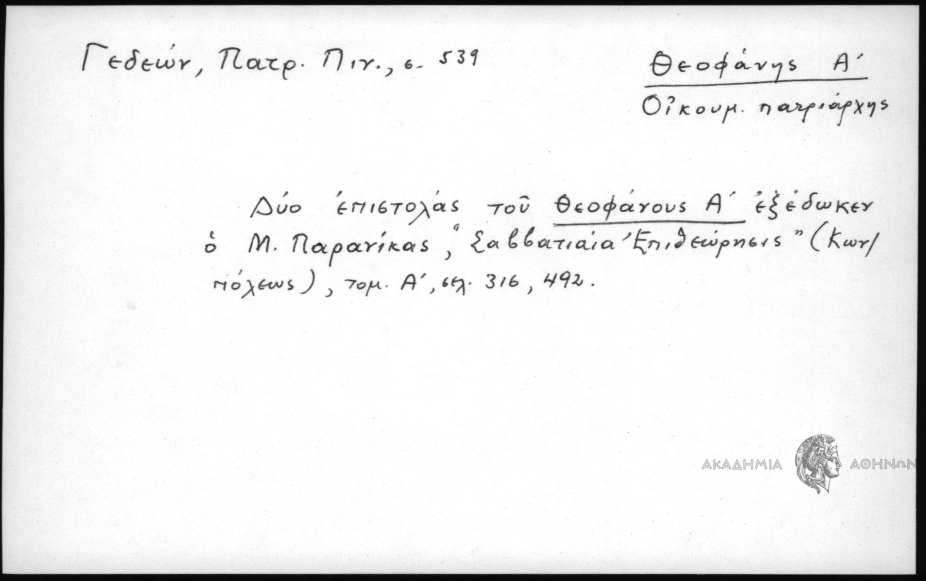 Γεδεών, Πατρ. Πιν., σ. 539
Θεοφάνης Α΄
Οἰκουμ. πατριάρχης
Δύο ἐπιστολάς τοῦ Θεοφάνους Α΄ ἐξέδωκεν
ὁ Μ. Παρανίκας, "Σαββατιαία Ἐπιθεώρησις" (Κων/
πόλεως), τομ. Α΄, σελ. 316, 492.
ΑΚΑΔΗΜΙΑ ΑΘΗΝΩΝ